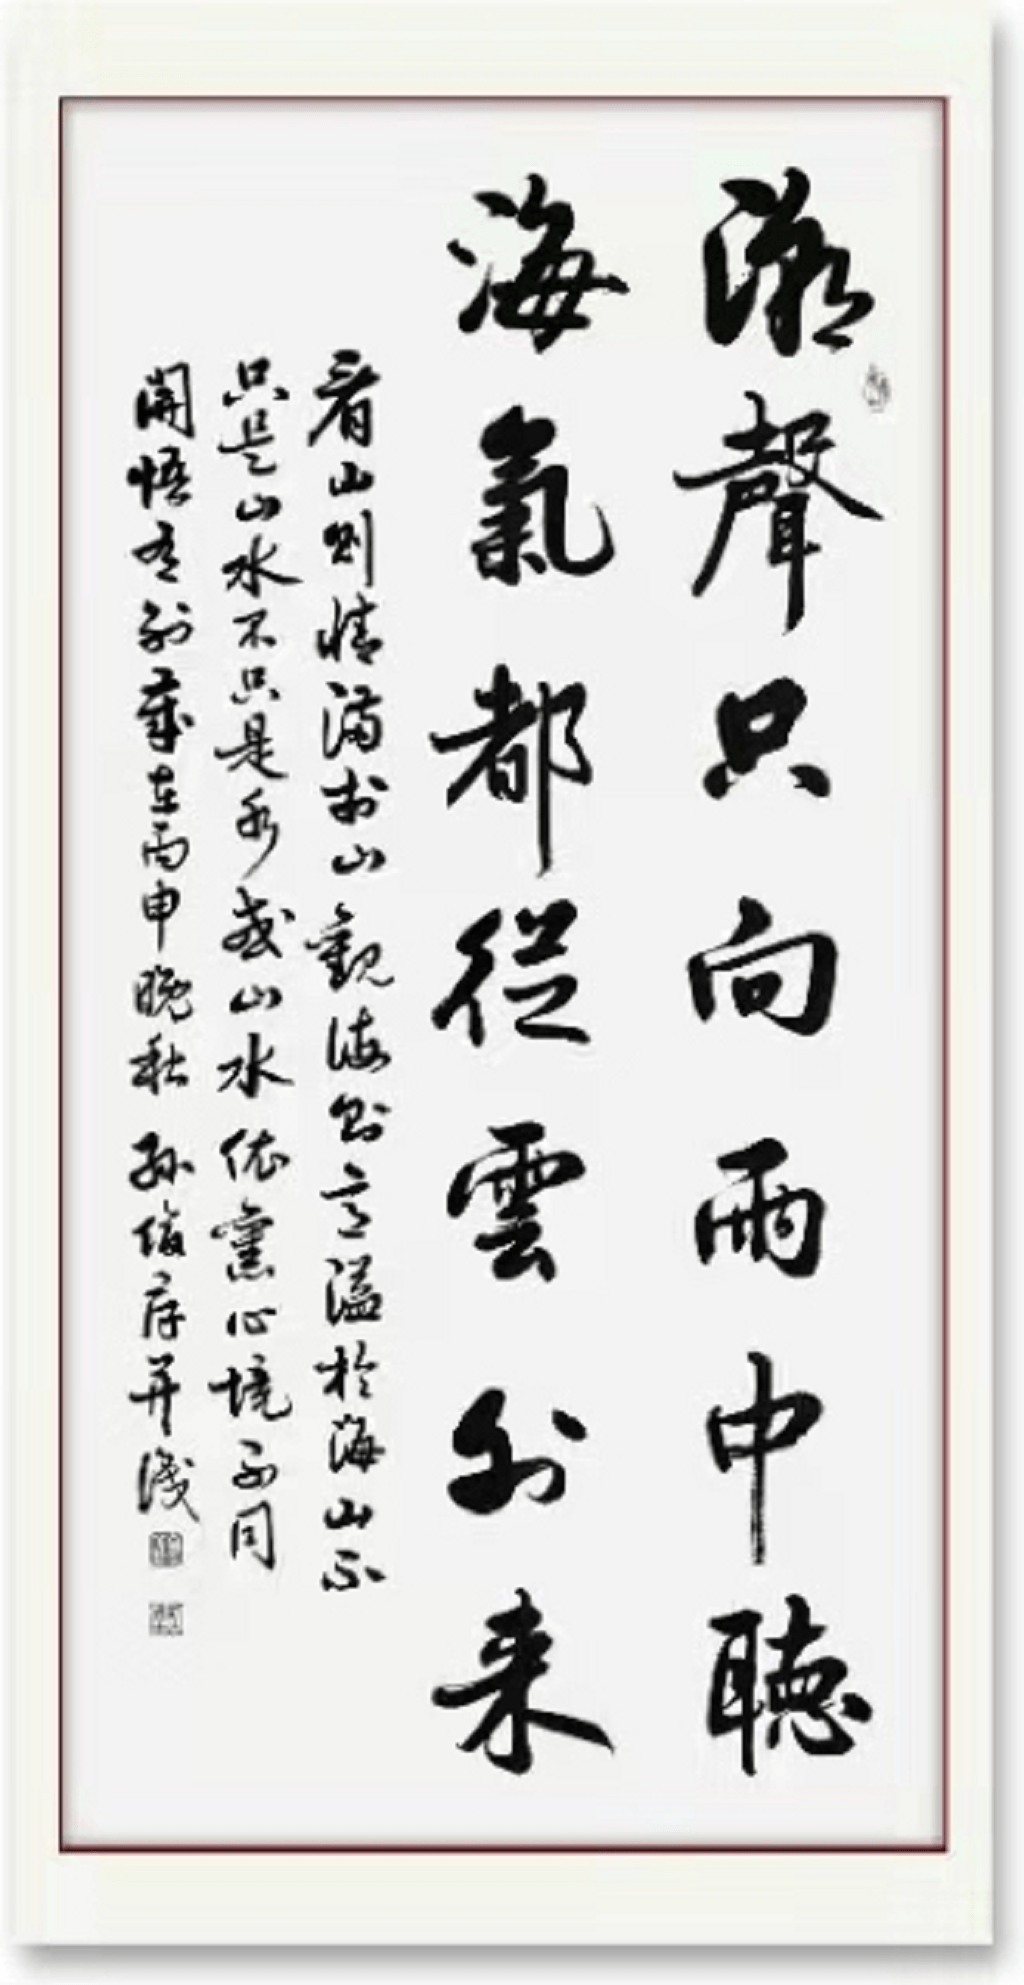 聲只向雨中聽
海氣都從雲外来
看山則情滿於山觀海則意溢於海山不
只是山水不只是水或山水依舊心境不同
開悟有別歲在丙申晚秋孫并識